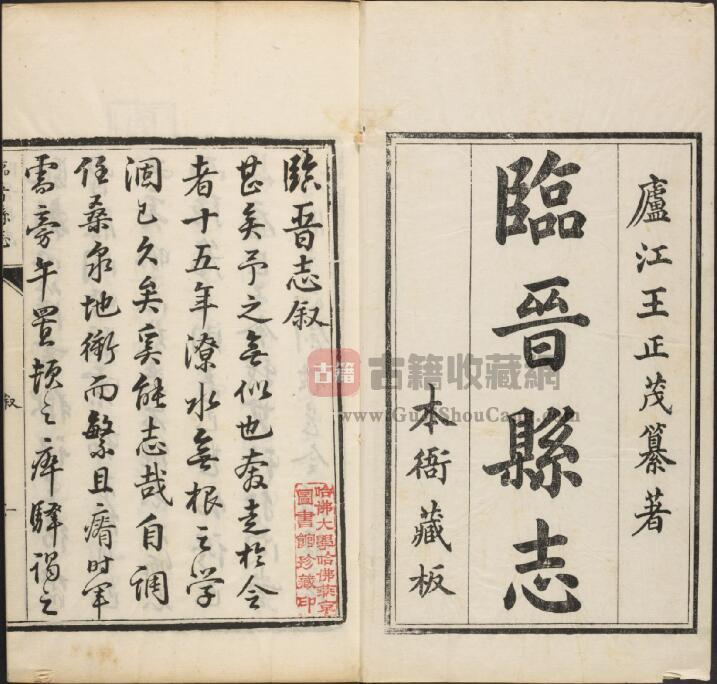 廬江王正茂纂著
臨晉縣志
本衙藏板
臨晉志叙
甚矣予之無似也奔走於令
者十五年潦水無根之学
涸已久矣奚能志哉自調
任桑泉地衝而繁且瘠时軍
需旁午置頓之瘁驛謁之
臨晉縣志
叙
哈佛大學哈佛燕京
圖書館珍藏印
古籍
古籍收藏網
www.GuJiShouCang.com